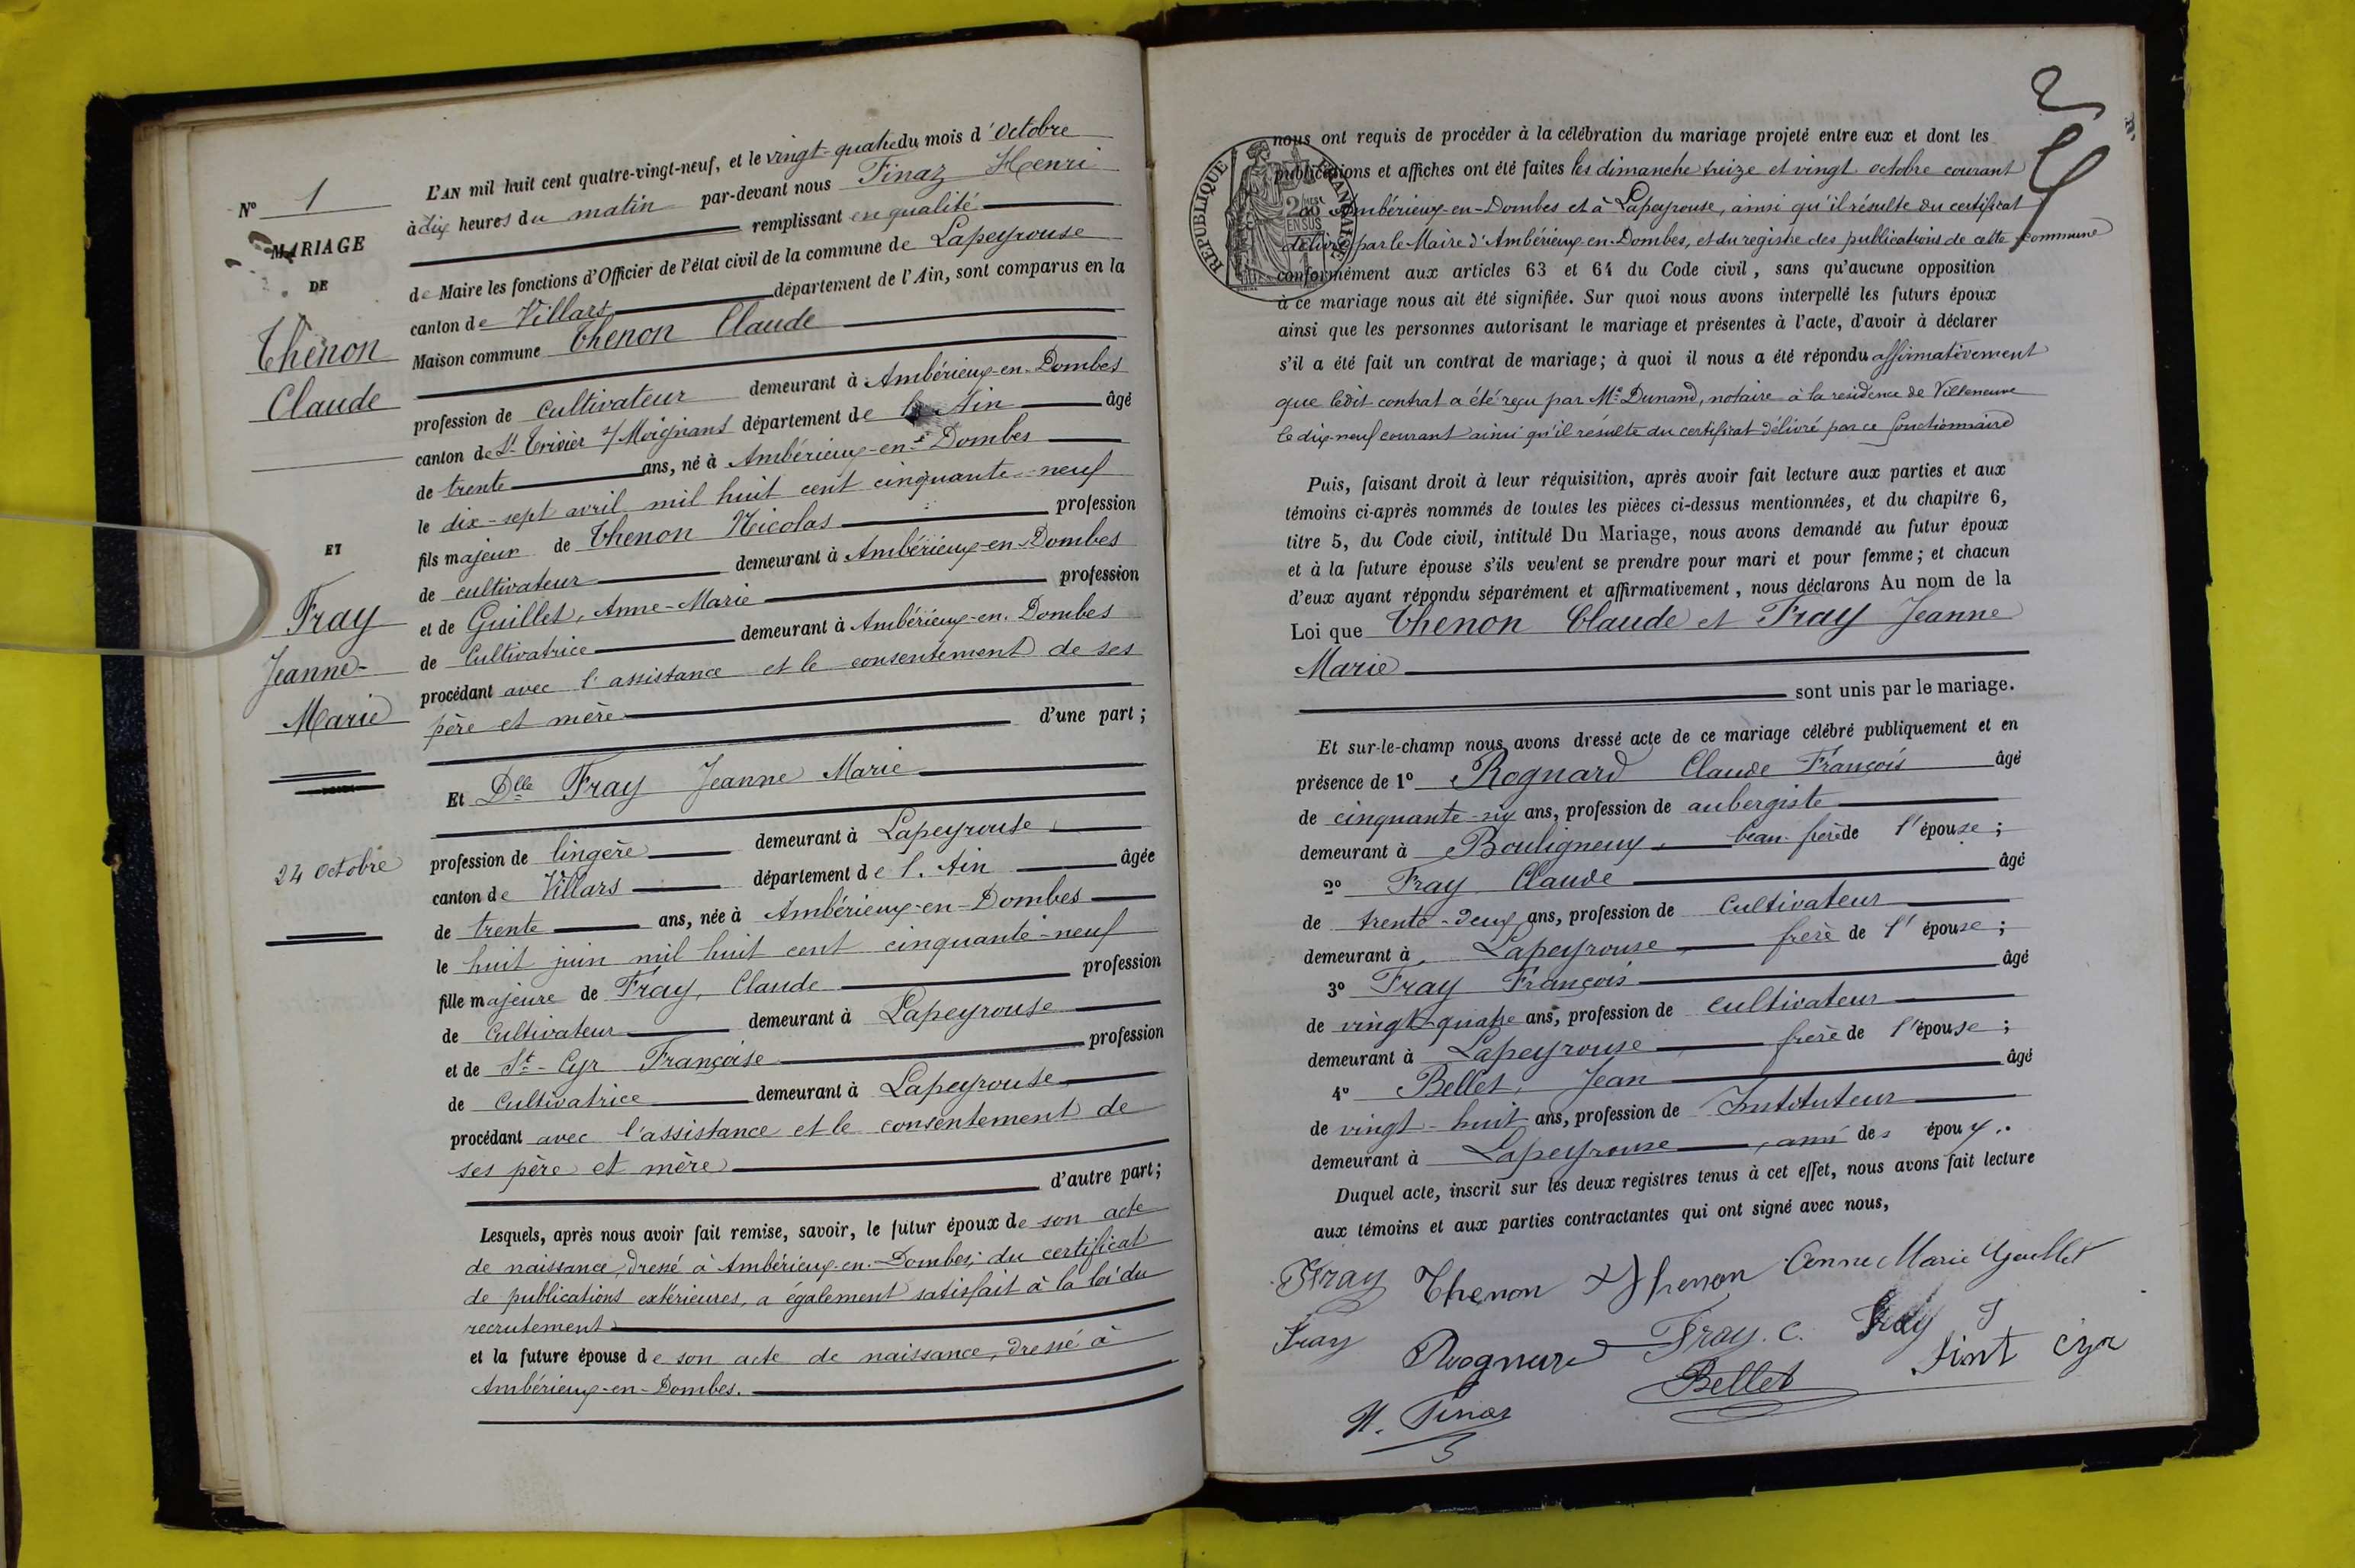 N° 1
MARIAGE
DE
Thenon
Claude
ET
Fray
Jeanne-
Marie
24 Octobre
L'AN mil huit cent quatre-vingt-neuf, et le vingt-quatre du mois d'Octobre
à dix heures du matin par-devant nous Finaz Henri
remplissant en qualité
de Maire les fonctions d'Officier de l'état civil de la commune de Lapeyrouse
canton de Villars département de l'Ain, sont comparus en la
Maison commune Thenon Claude
profession de cultivateur demeurant à Ambérieux-en-Dombes
canton de St Trivier s/ Moignans département de l'Ain âgé
de trente ans, né à Ambérieux-en-Dombes
le dix-sept avril mil huit cent cinquante-neuf
fils majeur de Thenon Nicolas profession
de cultivateur demeurant à Ambérieux-en-Dombes
et de Guillet, Anne-Marie profession
de Cultivatrice demeurant à Ambérieux-en-Dombes
procédant avec l'assistance et le consentement de ses
père et mère
d'une part;
Et Dlle Fray Jeanne Marie
profession de lingère demeurant à Lapeyrouse
canton de Villars département de l'Ain âgée
de trente ans, née à Ambérieux-en-Dombes
le huit juin mil huit cent cinquante-neuf
fille majeure de Fray, Claude profession
de Cultivateur demeurant à Lapeyrouse
et de St-Cyr Françoise profession
de Cultivatrice demeurant à Lapeyrouse
procédant avec l'assistance et le consentement de
ses père et mère
d'autre part;
Lesquels, après nous avoir fait remise, savoir, le futur époux de son acte
de naissance, dressé à Ambérieux-en-Dombes; du certificat
de publications extérieures, a également satisfait à la loi du
recrutement
et la future épouse de son acte de naissance, dressé à
Ambérieux-en-Dombes.
nous ont requis de procéder à la célébration du mariage projeté entre eux et dont les
publications et affiches ont été faites les dimanche treize et vingt octobre courant
à Ambérieux-en-Dombes et à Lapeyrouse, ainsi qu'il résulte du certificat
délivré par le Maire d'Ambérieux-en-Dombes, et du registre des publications de cette commune
conformément aux articles 63 et 64 du Code civil, sans qu'aucune opposition
à ce mariage nous ait été signifiée. Sur quoi nous avons interpellé les futurs époux
ainsi que les personnes autorisant le mariage et présentes à l'acte, d'avoir à déclarer
s'il a été fait un contrat de mariage; à quoi il nous a été répondu affirmativement
que ledit contrat a été reçu par Me Dunand, notaire à la residence de Villeneuve
le dix-neuf courant ainsi qu'il résulte du certificat délivré par ce fonctionnaire
RÉPUBLIQUE FRANÇAISE
Puis, faisant droit à leur réquisition, après avoir fait lecture aux parties et aux
témoins ci-après nommés de toutes les pièces ci-dessus mentionnées, et du chapitre 6,
titre 5, du Code civil, intitulé Du Mariage, nous avons demandé au futur époux
et à la future épouse s'ils veulent se prendre pour mari et pour femme; et chacun
d'eux ayant répondu séparément et affirmativement, nous déclarons Au nom de la
Loi que Thenon Claude et Fray Jeanne
Marie
sont unis par le mariage.
Et sur-le-champ nous avons dressé acte de ce mariage célébré publiquement et en
présence de 1° Rognard Claude François âgé
de cinquante-six ans, profession de aubergiste
demeurant à Bouligneux, beau-frère de l'épouse;
2° Fray Claude âgé
de trente-deux ans, profession de Cultivateur
demeurant à Lapeyrouse, frère de l'épouse;
3° Fray François âgé
de vingt-quatre ans, profession de cultivateur
demeurant à Lapeyrouse, frère de l'épouse;
4° Bellet, Jean âgé
de vingt-huit ans, profession de Instituteur
demeurant à Lapeyrouse, ami des époux.
Duquel acte, inscrit sur les deux registres tenus à cet effet, nous avons fait lecture
aux témoins et aux parties contractantes qui ont signé avec nous,
Fray Thenon Thenon Anne Marie Guillet
Fray Rognard Fray. C. Fray
Bellet Sint Cyr
H. Finaz